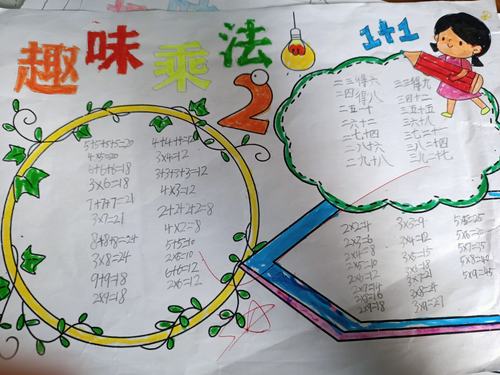 趣味乘法
1+1
2
5+5+5+5=20
4×5=20
6+6+6=18
3×6=18
7+7+7=21
3×7=21
8+8+8=24
3×8=24
9+9=18
2×9=18
4+4+4=12
3×4=12
3+3+3+3=12
4×3=12
2+2+2+2=8
4×2=8
5+5=10
2×5=10
6+6=12
2×6=12
二三得六
二四得八
二五一十
二六十二
二七十四
二八十六
二九十八
三三得九
三四十二
三五十五
三六十八
三七二十一
三八二十四
三九二十七
2×2=4
2×3=6
2×4=8
2×5=10
2×6=12
2×7=14
2×8=16
2×9=18
3×3=9
3×4=12
3×5=15
3×6=18
3×7=21
3×8=24
3×9=27
5×5=25
5×6=30
5×7=35
5×8=40
5×9=45